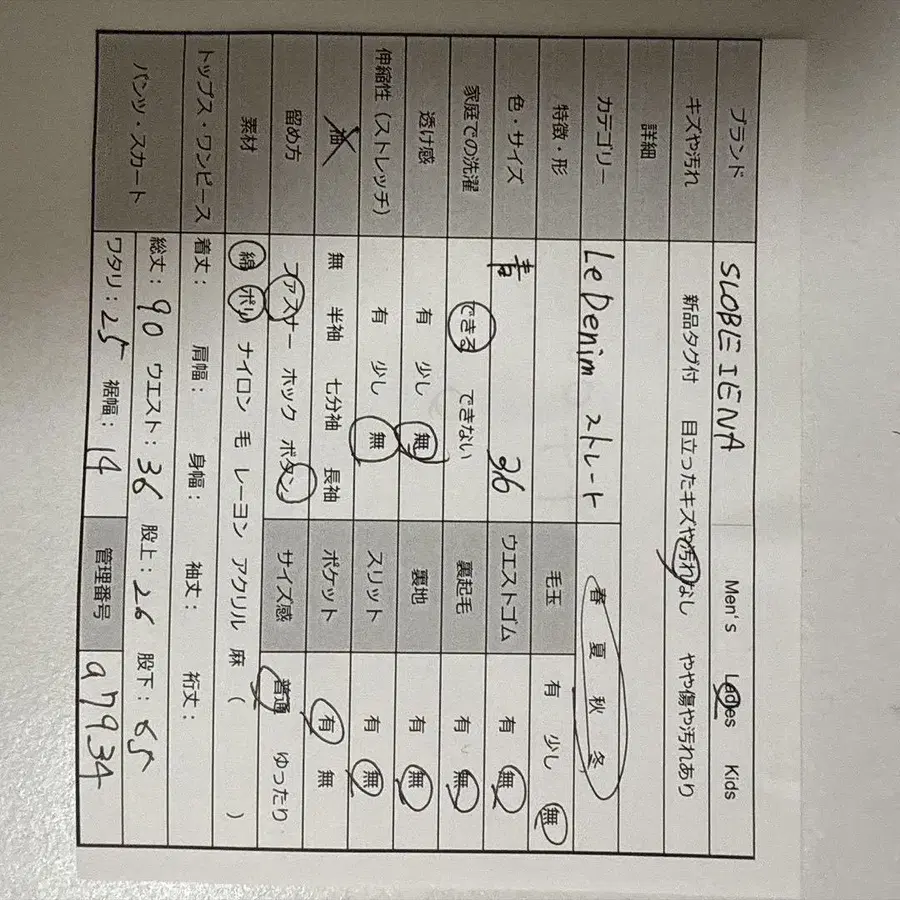 ブランド SLOBE IENA Men's Ladies Kids
キズや汚れ 新品タグ付 目立ったキズや汚れなし やや傷や汚れあり
詳細
カテゴリー Le Denim ストレート 春 夏 秋 冬
特徴・形 毛玉 有 少し 無
色・サイズ 青 36 ウエストゴム 有 無
家庭での洗濯 できる できない 裏起毛 有 無
透け感 有 少し 無 裏地 有 無
伸縮性（ストレッチ） 有 少し 無 スリット 有 無
袖 無 半袖 七分袖 長袖 ポケット 有 無
留め方 ファスナー ホック ボタン サイズ感 普通 ゆったり
素材 綿 ポリ ナイロン 毛 レーヨン アクリル 麻 （ ）
トップス・ワンピース 着丈： 肩幅： 身幅： 袖丈： 裄丈：
パンツ・スカート 総丈：90 ウエスト：36 股上：26 股下：65
ワタリ：25 裾幅：14 管理番号 a7934